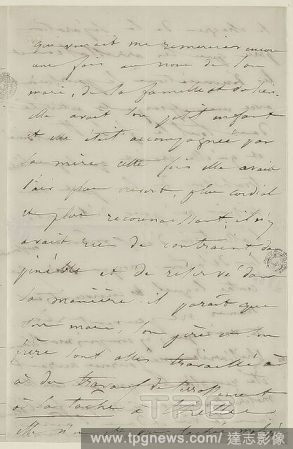 me remercier encore
une fois au nom de son
mari, de sa famille et
Elle avait son petit enfant
et elle était accompagnée par
sa mère cette fois elle avait
l'air plus ouvert, plus cordial
et plus reconnaissant, il n'y
avait rien de contraint
et de réservé dans
sa manière. il paraît que
son mari, son père et son
frère sont allés travailler à
à des travaux de terrassement
à la tâche à
elle
TPG
www.tpgnews.com / 達志影像